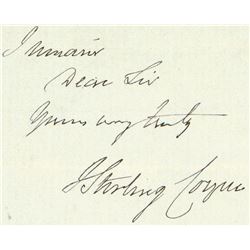 I remain
Dear Sir
Yours very truly
J Stirling Coyne